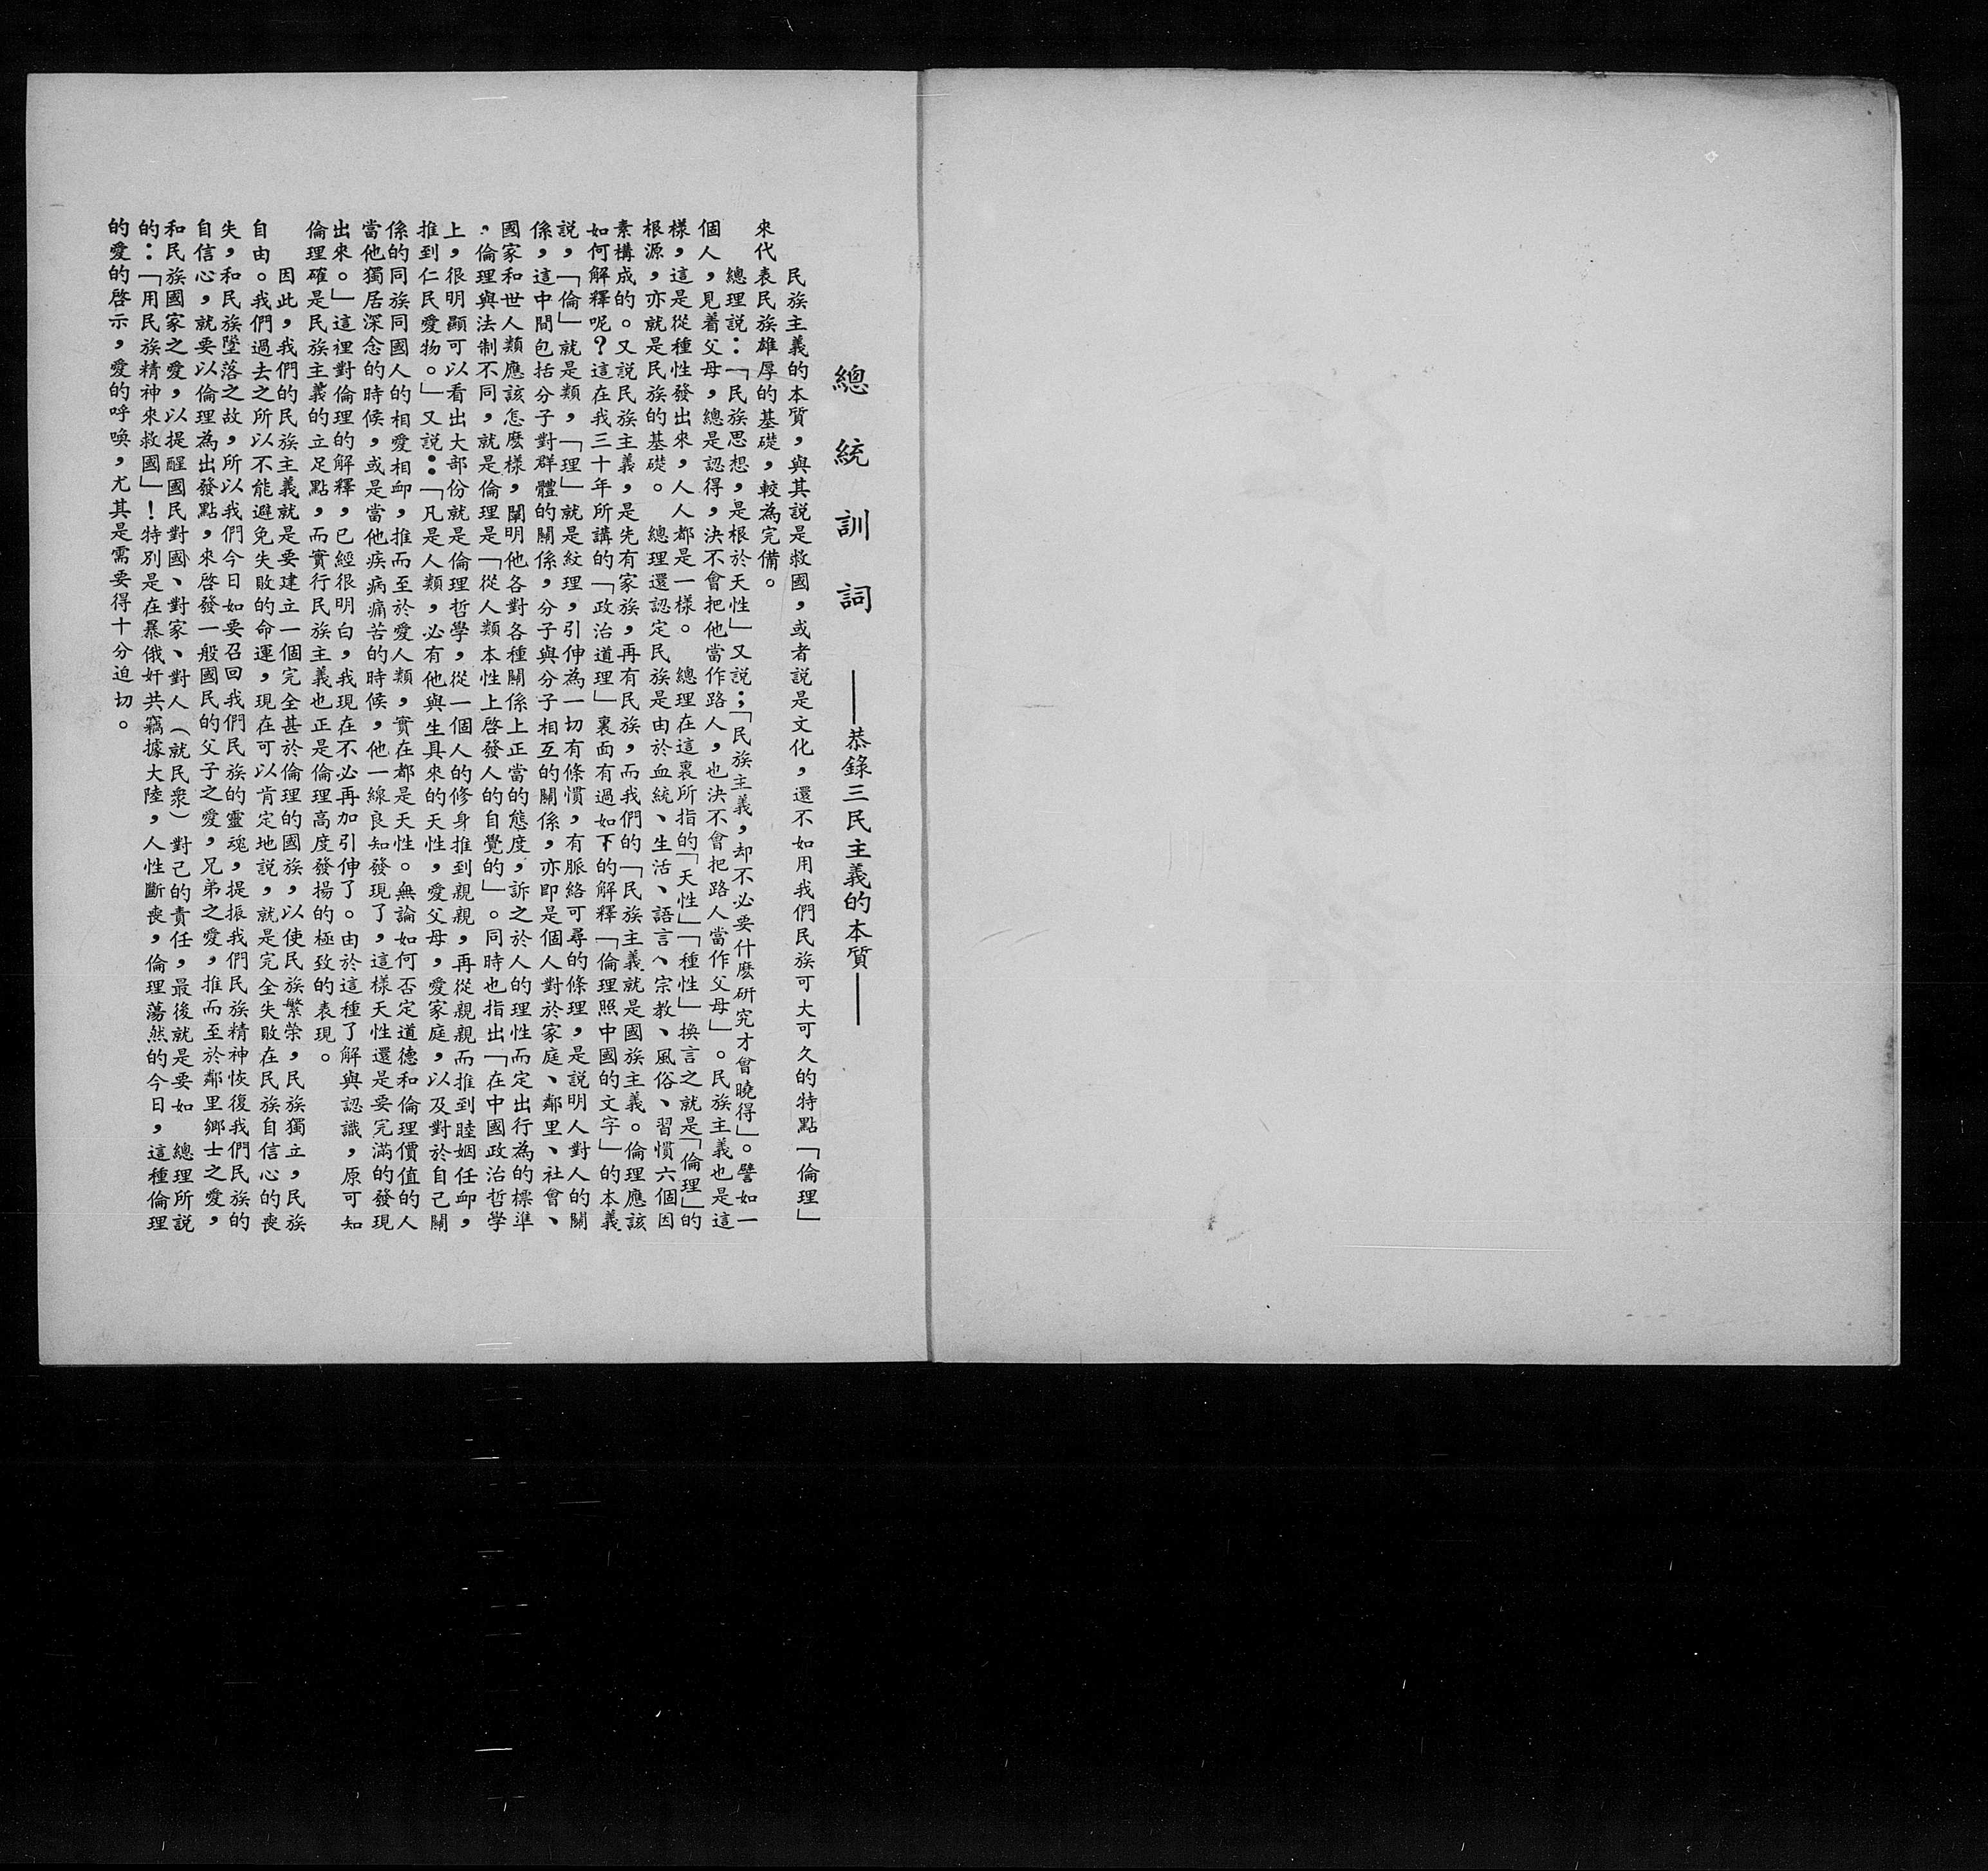 總統訓詞　——恭錄三民主義的本質——
民族主義的本質，與其說是救國，或者說是文化，還不如用我們民族可大可久的特點「倫理」
來代表民族雄厚的基礎，較為完備。
總理說：「民族思想，是根於天性」又說；「民族主義，却不必要什麼研究才會曉得」。譬如一
個人，見着父母，總是認得，決不會把他當作路人，也決不會把路人當作父母」。民族主義也是這
樣，這是從種性發出來，人人都是一樣。　總理在這裏所指的「天性」「種性」換言之就是「倫理」的
根源，亦就是民族的基礎。　總理還認定民族是由於血統、生活、語言、宗教、風俗、習慣六個因
素構成的。又說民族主義，是先有家族，再有民族，而我們的「民族主義就是國族主義。倫理應該
如何解釋呢？這在我三十年所講的「政治道理」裏面有過如下的解釋「倫理照中國的文字」的本義
說，「倫」就是類，「理」就是紋理，引伸為一切有條慣，有脈絡可尋的條理，是說明人對人的關
係，這中間包括分子對群體的關係，分子與分子相互的關係，亦即是個人對於家庭、鄰里、社會、
國家和世人類應該怎麼樣，闡明他各對各種關係上正當的態度，訴之於人的理性而定出行為的標準
，倫理與法制不同，就是倫理是「從人類本性上啓發人的自覺的」。同時也指出「在中國政治哲學
上，很明顯可以看出大部份就是倫理哲學，從一個人的修身推到親親，再從親親而推到睦姻任卹，
推到仁民愛物。」又說：「凡是人類，必有他與生具來的天性，愛父母，愛家庭，以及對於自己關
係的同族同國人的相愛相卹，推而至於愛人類，實在都是天性。無論如何否定道德和倫理價值的人
當他獨居深念的時候，或是當他疾病痛苦的時候，他一線良知發現了，這樣天性還是要完滿的發現
出來。」這裡對倫理的解釋，已經很明白，我現在不必再加引伸了。由於這種了解與認識，原可知
倫理確是民族主義的立足點，而實行民族主義也正是倫理高度發揚的極致的表現。
因此，我們的民族主義就是要建立一個完全甚於倫理的國族，以使民族繁榮，民族獨立，民族
自由。我們過去之所以不能避免失敗的命運，現在可以肯定地說，就是完全失敗在民族自信心的喪
失，和民族墜落之故，所以我們今日如要召回我們民族的靈魂，提振我們民族精神恢復我們民族的
自信心，就要以倫理為出發點，來啓發一般國民的父子之愛，兄弟之愛，推而至於鄰里鄉士之愛，
和民族國家之愛，以提醒國民對國、對家、對人（就民衆）對己的責任，最後就是要如　總理所說
的：「用民族精神來救國」！特別是在暴俄奸共竊據大陸，人性斷喪，倫理蕩然的今日，這種倫理
的愛的啓示，愛的呼喚，尤其是需要得十分迫切。